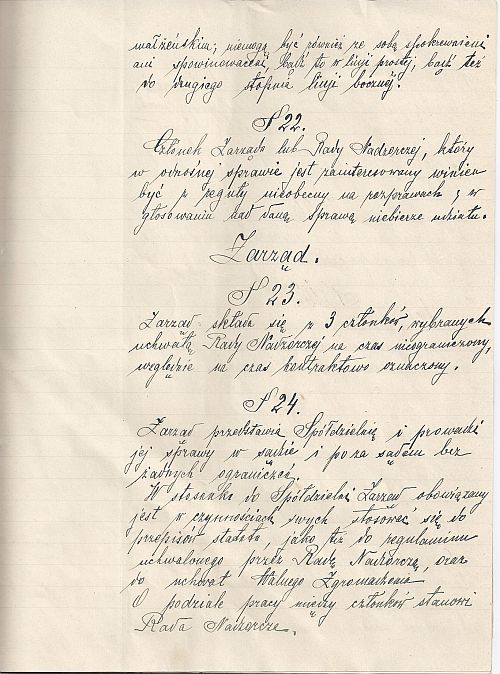 małżeńskim; niemogą być również ze sobą spokrewnieni
ani spowinowaceni, bądź to w linji prostej, bądź też
do drugiego stopnia linji bocznej.
§ 22.
Członek Zarządu lub Rady Nadzorczej, który
w odnośnej sprawie jest zainteresowany winien
być z reguły nieobecny na rozprawach i w
głosowaniu nad daną sprawą niebierze udziału.
Zarząd.
§ 23.
Zarząd składa się z 3 członków, wybranych
uchwałą Rady Nadzorczej na czas nieograniczony,
względnie na czas kontraktowo oznaczony.
§ 24.
Zarząd przedstawia Spółdzielnię i prowadzi
jej sprawy w sądzie i poza sądem bez
żadnych ograniczeń.
W stosunku do Spółdzielni Zarząd obowiązany
jest w czynnościach swych stosować się do
przepisów statutu, jako też do regulaminu
uchwalonego przez Radę Nadzorczą, oraz
do uchwał Walnego Zgromadzenia
O podziale pracy między członków stanowi
Rada Nadzorcza.